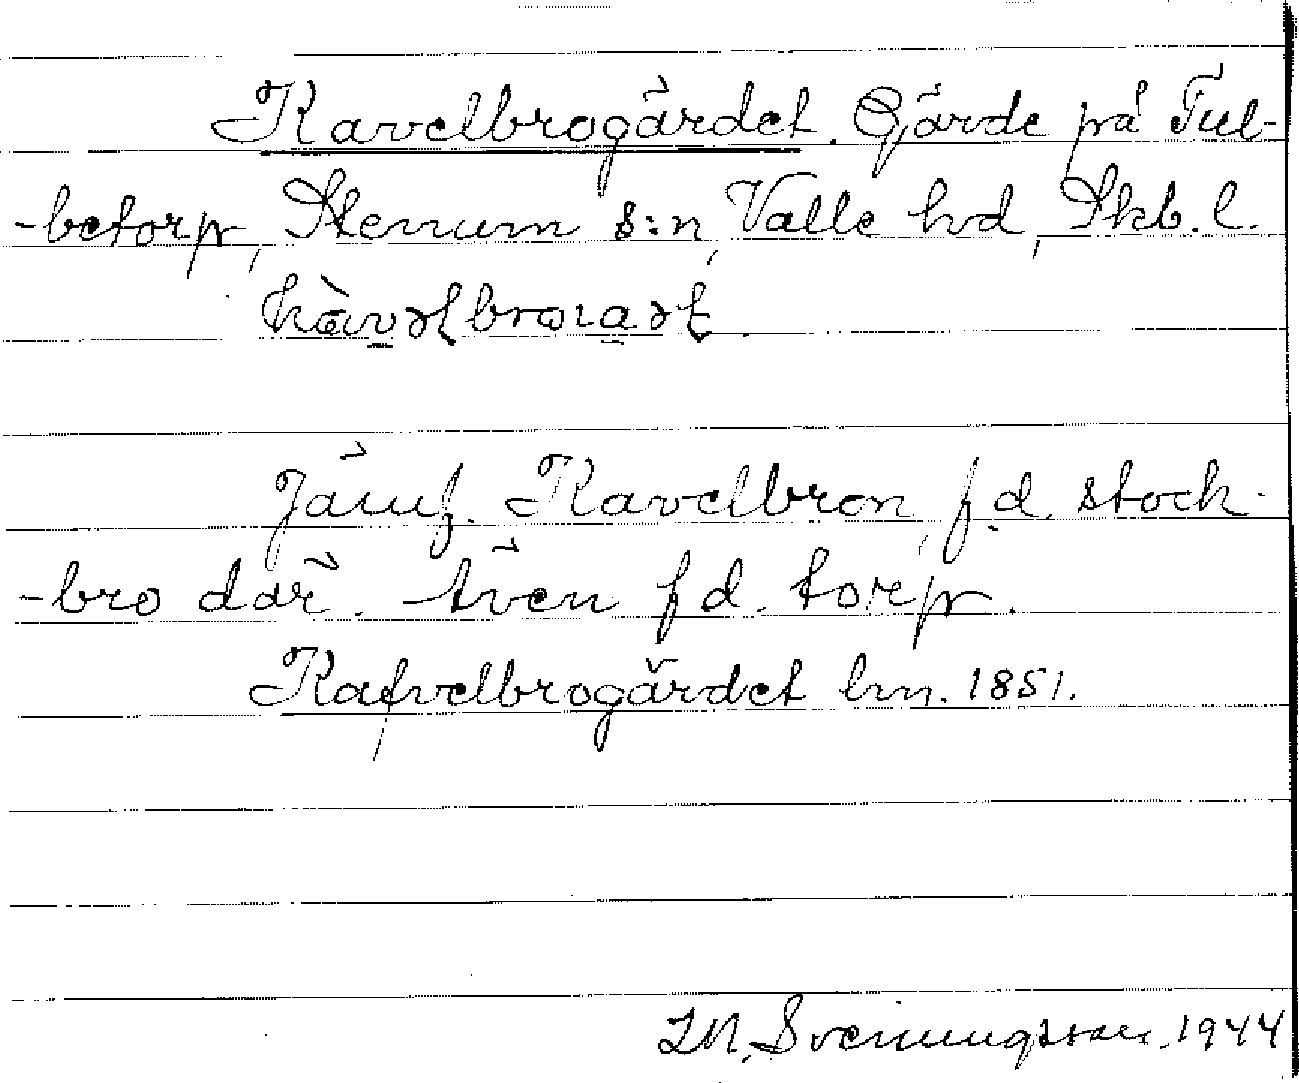 Kavelbrogärdet. Gjärde på Tub-
-betorp, Stenum s:n, Valle hd, Skb. l.
Jämf. Kavelbron, f.d. stock-
-bro där. Även f.d. torp.
Kafvelbrogärdet hm. 1851.
Sveningsson. 1944